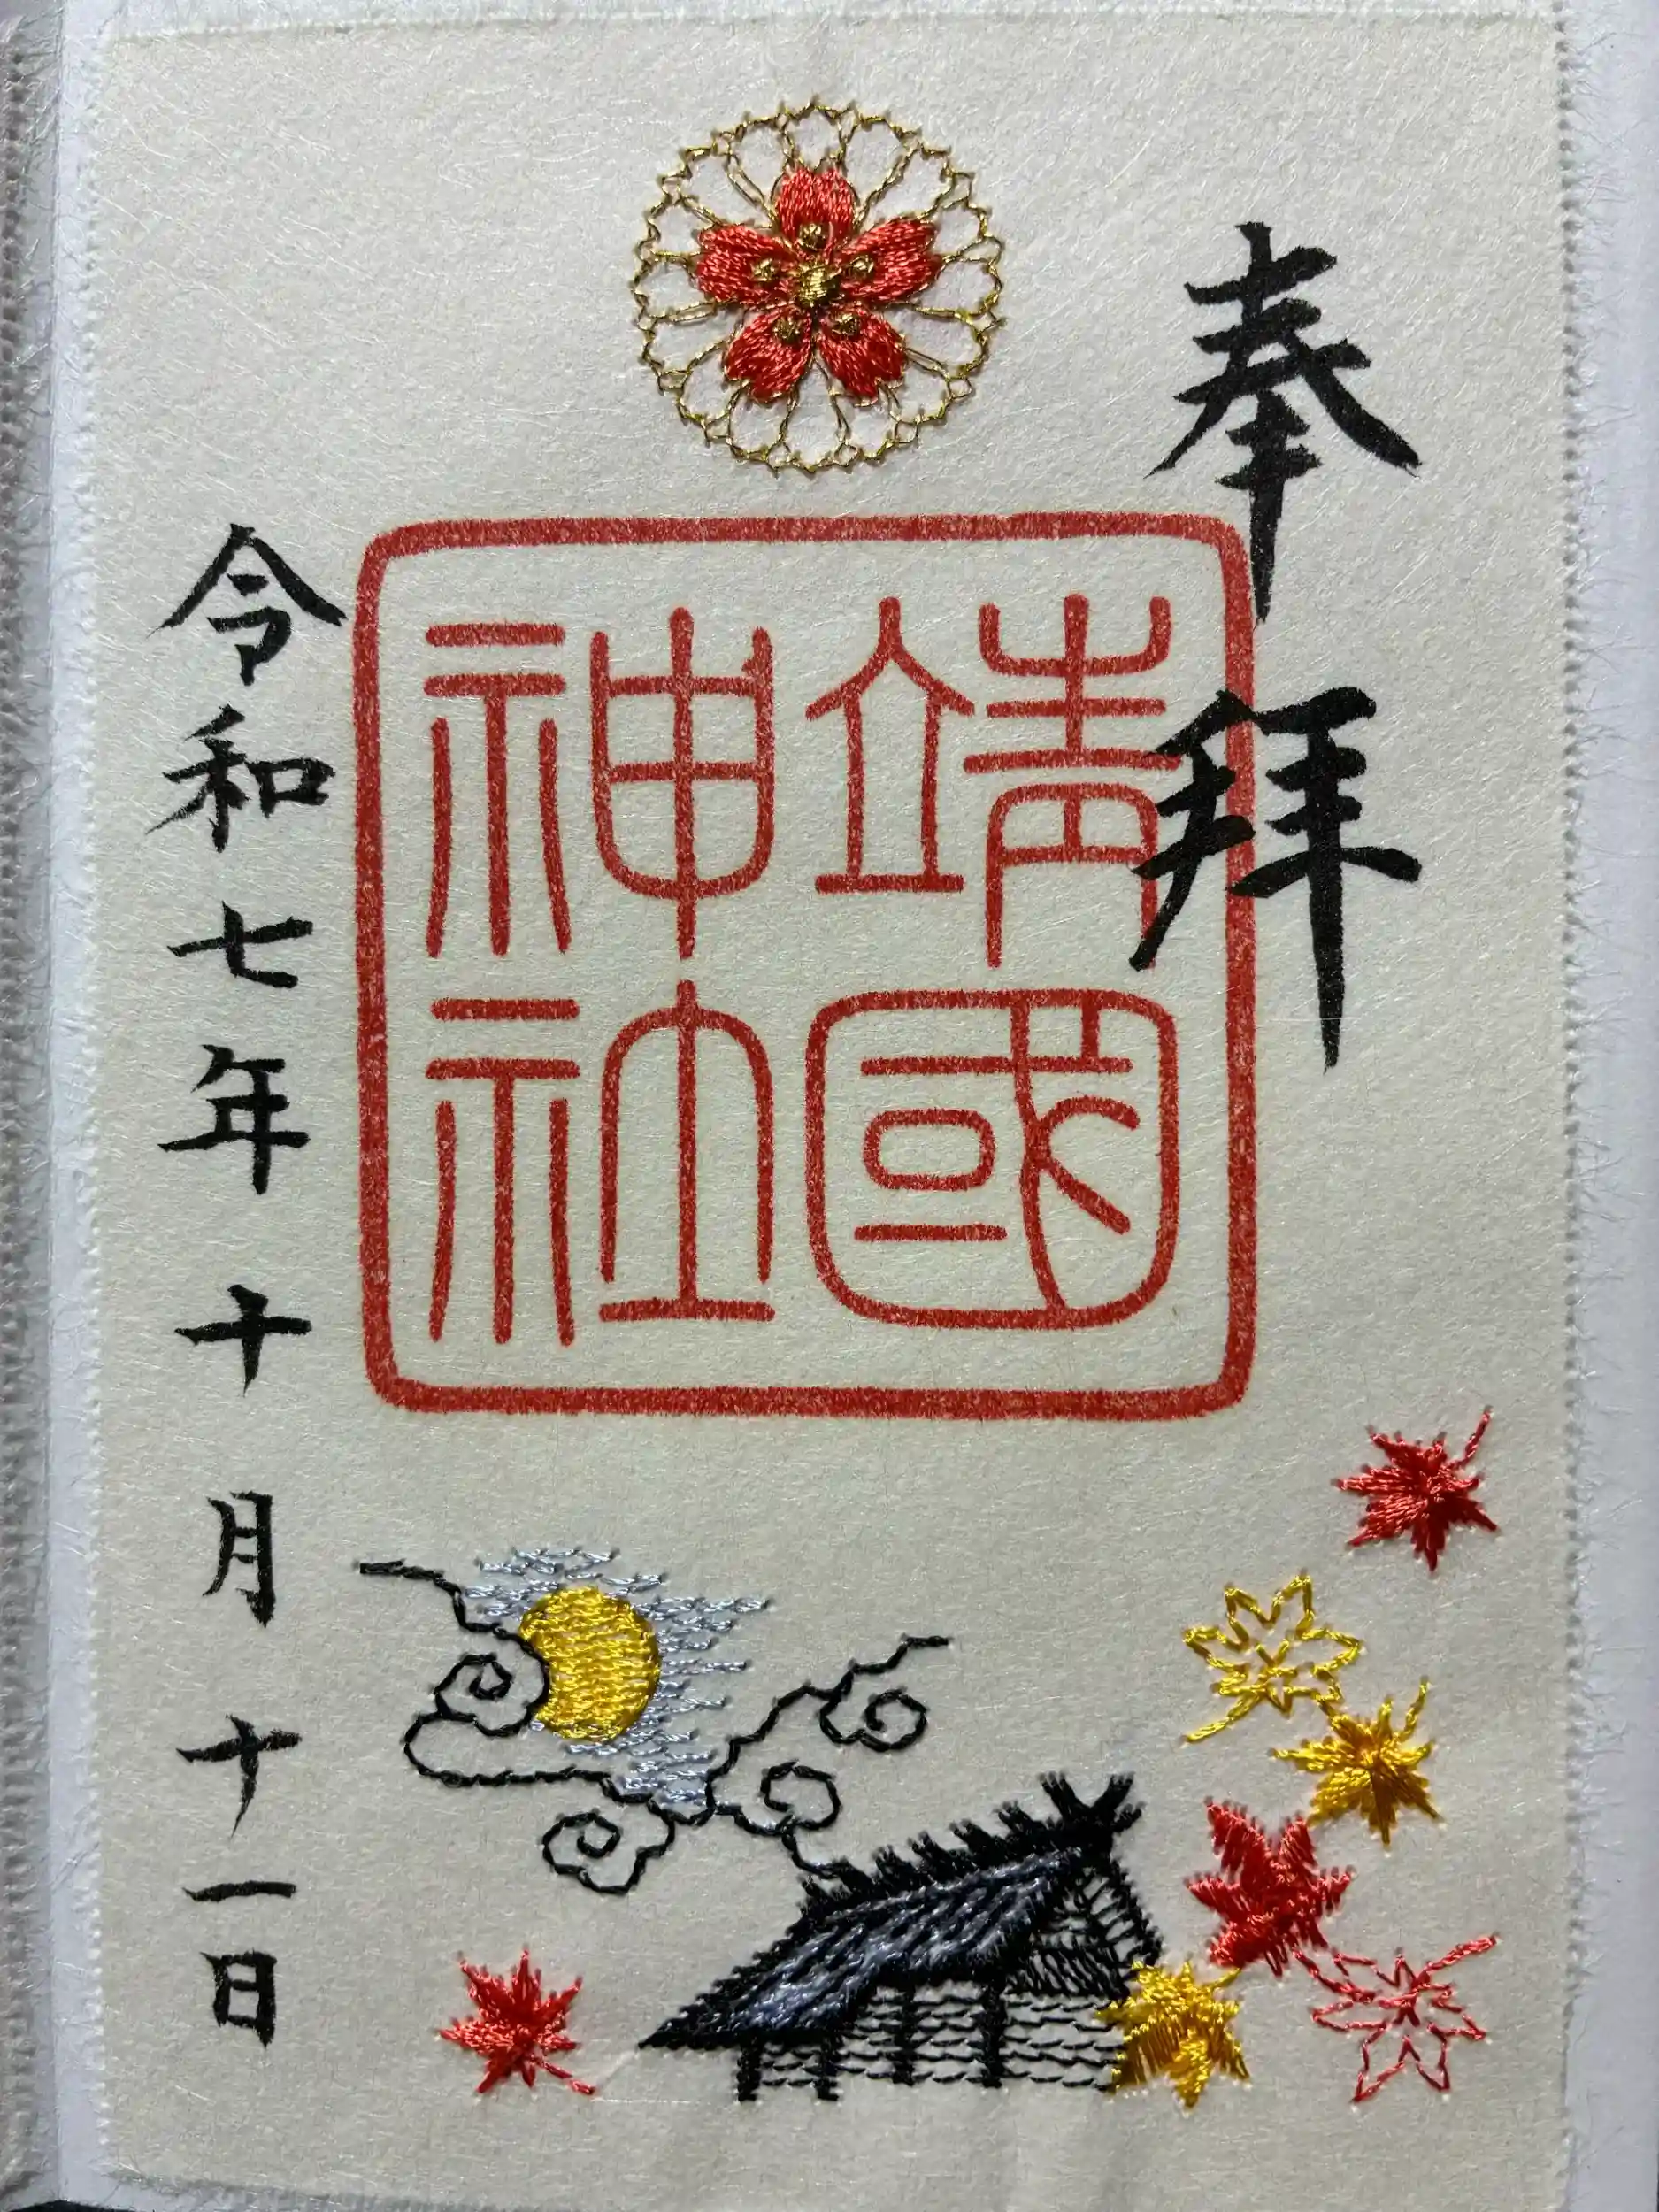 奉拝
靖國
神社
令和七年十月十一日